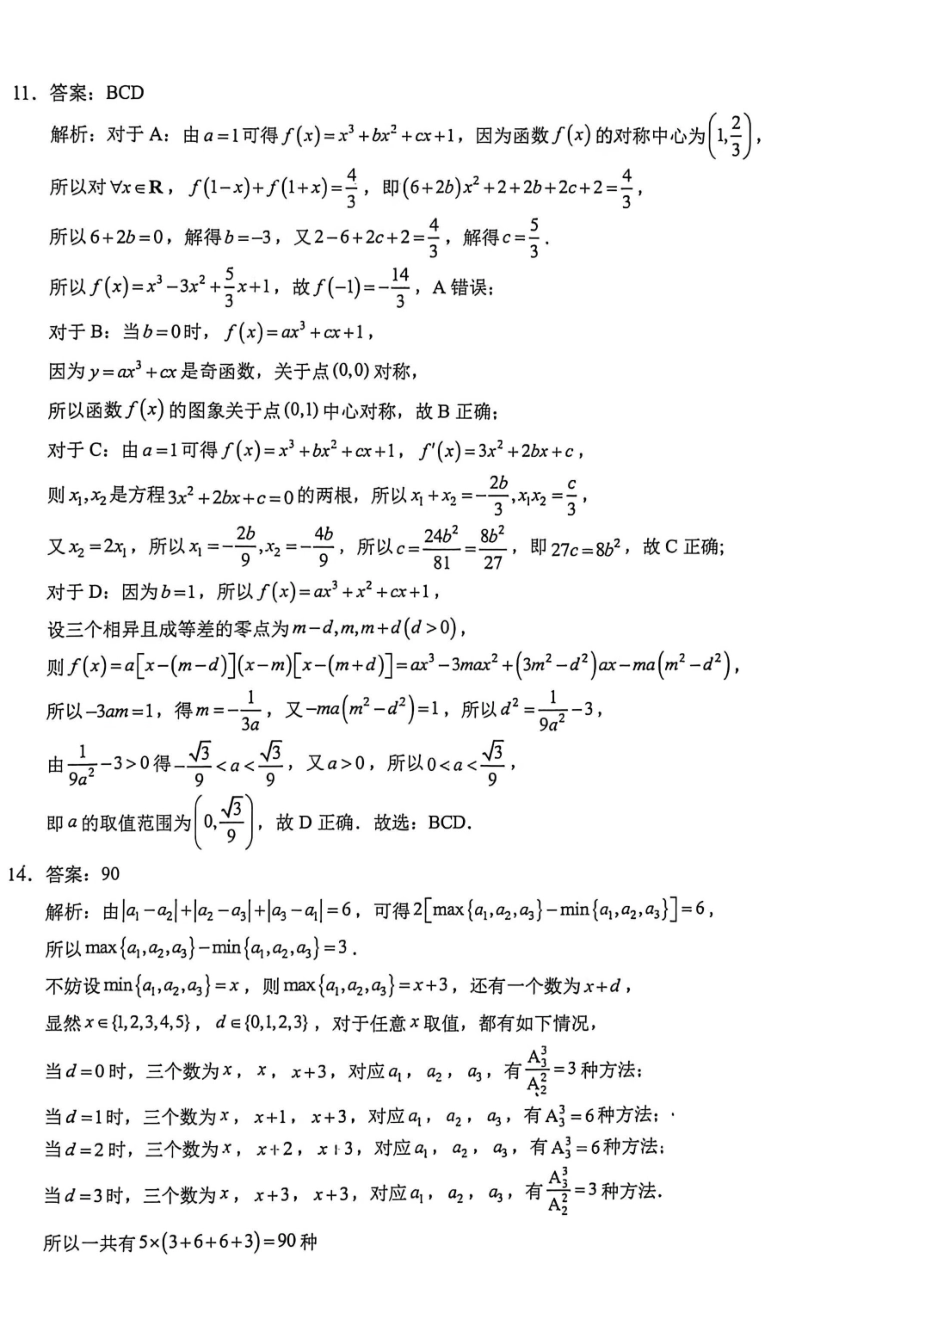 11．答案：BCD
解析：对于 A：由 a=1可得 f(x)=x³+bx²+cx+1，因为函数 f(x) 的对称中心为(1,2/3)，
所以对∀x∈R，f(1−x)+f(1+x)=4/3，即(6+2b)x²+2+2b+2c+2=4/3，
所以6+2b=0，解得b=−3，又2−6+2c+2=4/3，解得c=5/3．
所以 f(x)=x³−3x²+5/3x+1，故 f(−1)=−14/3，A 错误；
对于 B：当b=0时，f(x)=ax³+cx+1，
因为 y=ax³+cx 是奇函数，关于点(0,0)对称，
所以函数 f(x) 的图象关于点(0,1)中心对称，故 B 正确；
对于 C：由 a=1可得 f(x)=x³+bx²+cx+1，f′(x)=3x²+2bx+c，
则 x₁,x₂是方程3x²+2bx+c=0的两根，所以 x₁+x₂=−2b/3,x₁x₂=c/3，
又 x₂=2x₁，所以 x₁=−2b/9,x₂=−4b/9，所以c=24b²/81=8b²/27，即 27c=8b²，故 C 正确；
对于 D：因为b=1，所以 f(x)=ax³+x²+cx+1，
设三个相异且成等差的零点为 m−d,m,m+d(d>0)，
则 f(x)=a[x−(m−d)](x−m)[x−(m+d)]=ax³−3max²+(3m²−d²)ax−ma(m²−d²)，
所以−3am=1，得 m=−1/3a，又−ma(m²−d²)=1，所以d²=1/9a²−3，
由1/9a²−3>0得−√3/9<a<√3/9，又a>0，所以0<a<√3/9，
即 a 的取值范围为(0,√3/9)，故 D 正确．故选：BCD．
14．答案：90
解析：由|a₁−a₂|+|a₂−a₃|+|a₃−a₁|=6，可得2[max{a₁,a₂,a₃}−min{a₁,a₂,a₃}]=6，
所以 max{a₁,a₂,a₃}−min{a₁,a₂,a₃}=3．
不妨设 min{a₁,a₂,a₃}=x，则 max{a₁,a₂,a₃}=x+3，还有一个数为 x+d，
显然 x∈{1,2,3,4,5}，d∈{0,1,2,3}，对于任意 x 取值，都有如下情况，
当 d=0时，三个数为 x，x，x+3，对应 a₁，a₂，a₃，有A₃³/A₂²=3种方法；
当 d=1时，三个数为 x，x+1，x+3，对应 a₁，a₂，a₃，有A₃³=6种方法；
当 d=2时，三个数为 x，x+2，x+3，对应 a₁，a₂，a₃，有A₃³=6种方法；
当 d=3时，三个数为 x，x+3，x+3，对应 a₁，a₂，a₃，有A₃³/A₂²=3种方法．
所以一共有 5×(3+6+6+3)=90种